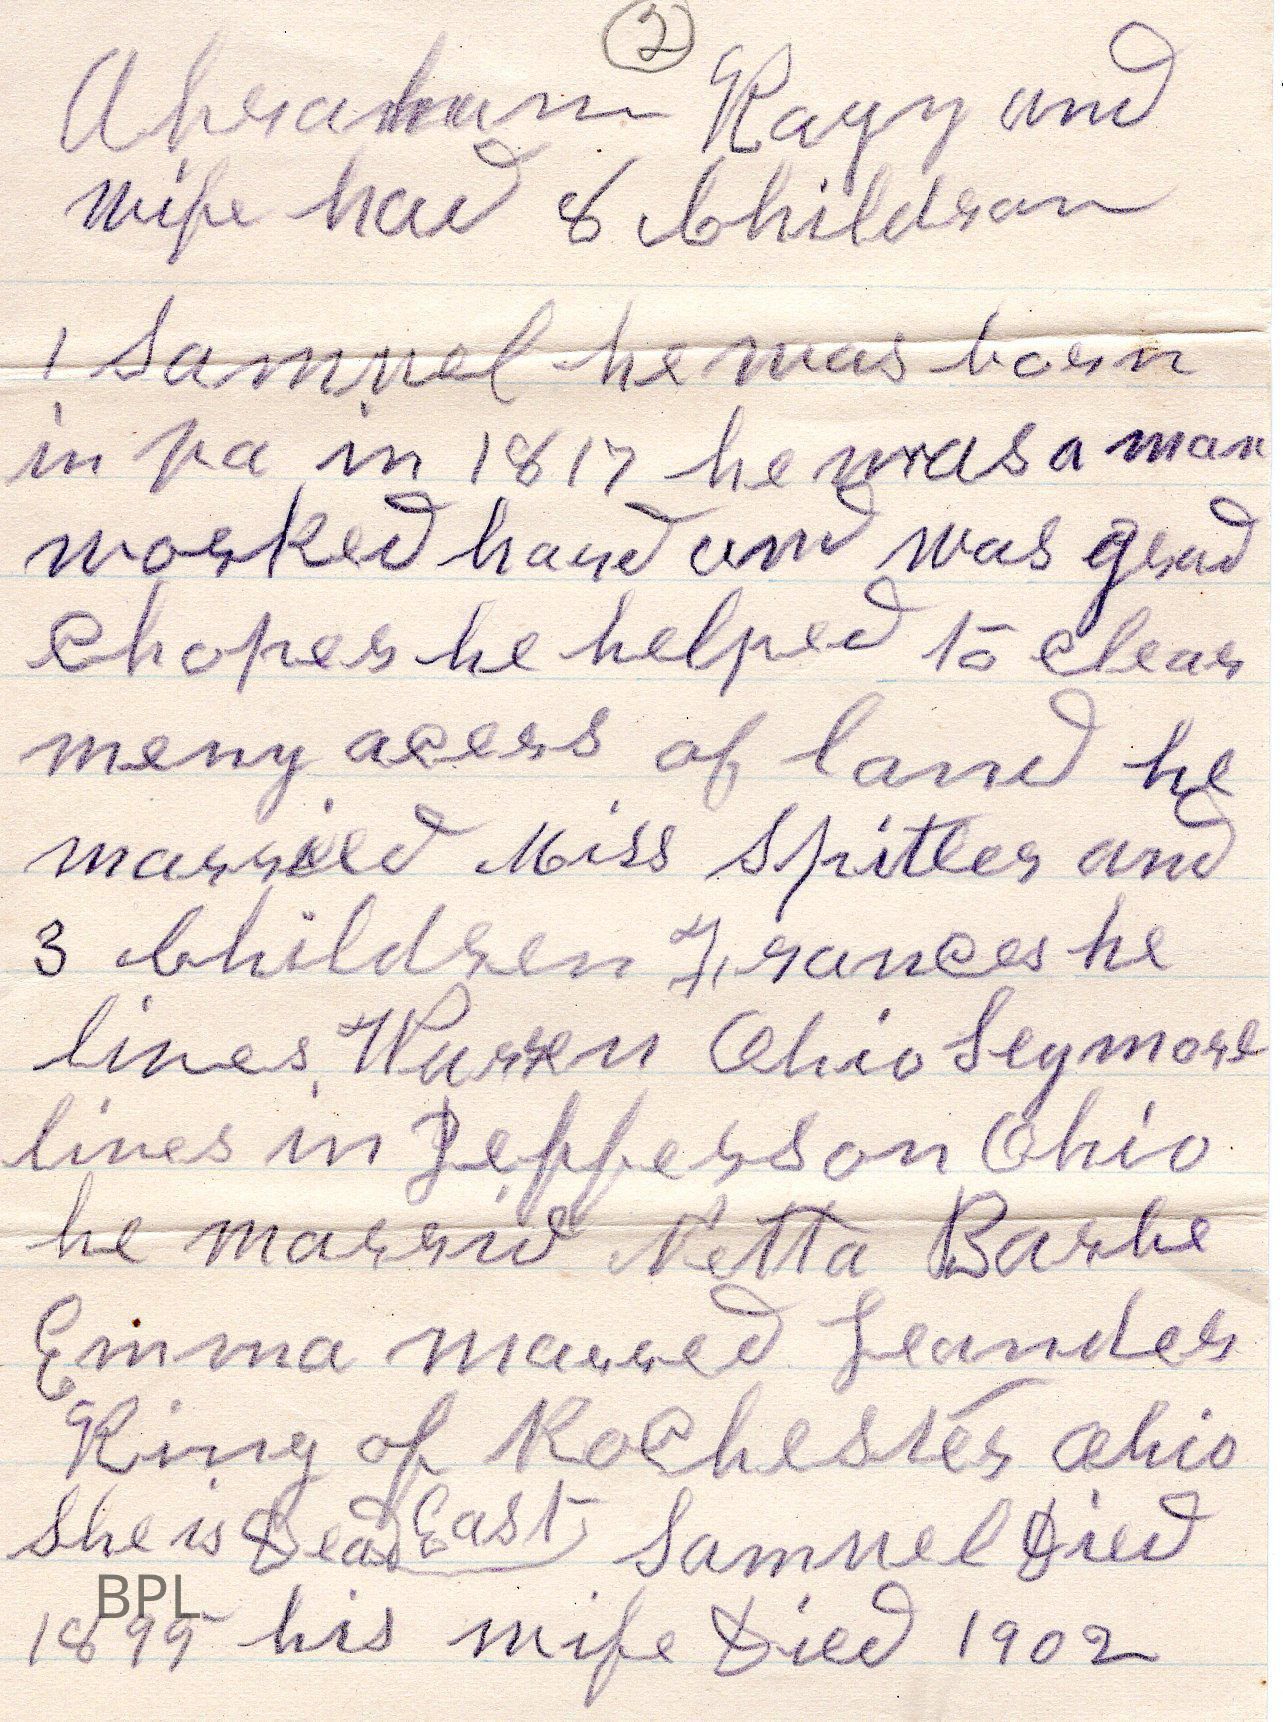 2
Abraham Ragy and
wife had 8 Childran
1 Samuel he was born
in pa in 1817 he was a man
worked hard and was grad
Choper he helped to clear
meny acers of land he
married Miss Spitler and
3 Children Frances he
lives Warren Ohio Seymore
lives in Jefferson Ohio
he marrid Netta Barbe
Emma marred Leander
King of Rochester Ohio
She is Dead East Samuel Died
1895 his wife Died 1902
BPL